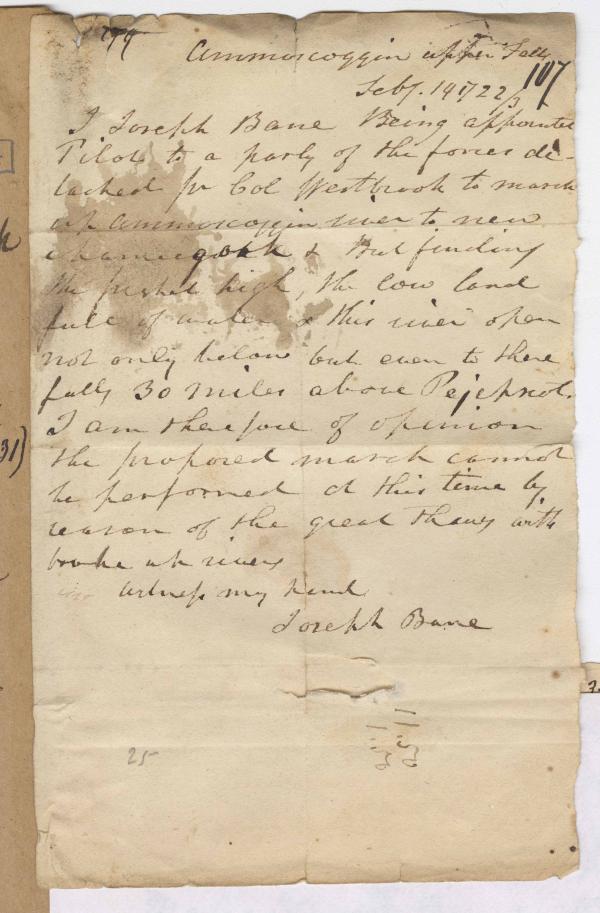 299
Ammoscoggin upper Falls
107
Feby. 14 1722/3
I Joseph Bane Being appointed
Pilot to a party of the forces de-
tached pr Col Westbrook to march
up Ammoscoggin river to new
& But finding
the freshet high, the low land
full of water & this river open
not only below but even to these
falls 30 miles above Pejepscot.
I am therefore of opinion
the proposed march cannot
be performed at this time by
reason of the great thaws with
broke up rivers
witness my hand
Joseph Bane
25
31)